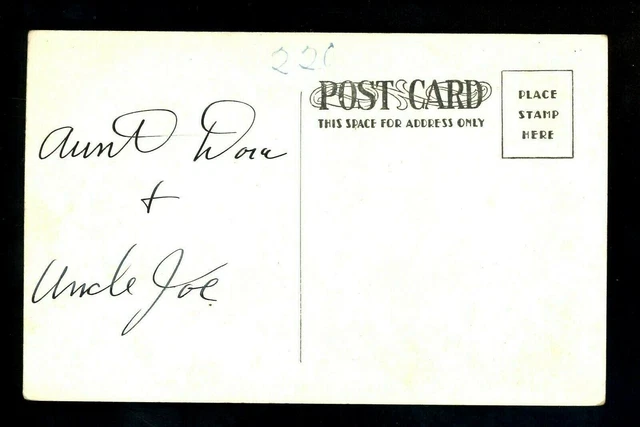 220
POST CARD
THIS SPACE FOR ADDRESS ONLY
PLACE
STAMP
HERE
Aunt Dora
+
Uncle Joe